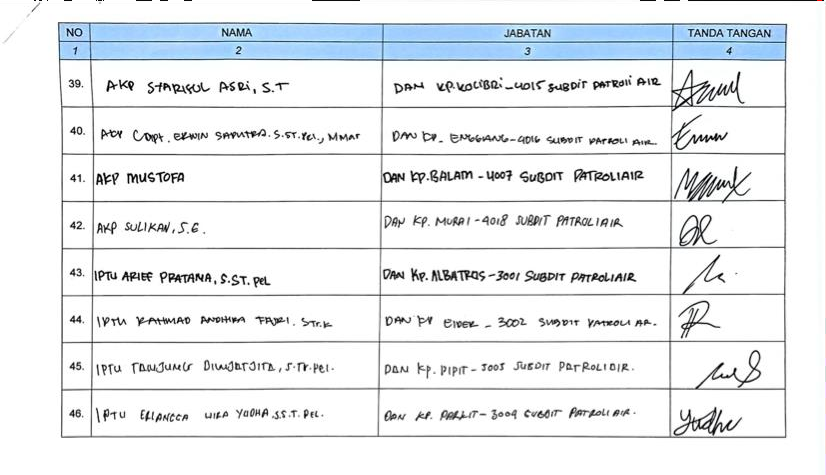 NO NAMA JABATAN TANDA TANGAN
1 2 3 4
39. AKP SYARIFUL ASRI, S.T DAN KP.KOLIBRI-4015 SUBDIT PATROLI AIR
40. AKP CDPT. ERWIN SAPUTRA.S.ST.Pel., MMar DAN KP. ENGGANG-4016 SUBDIT PATROLI AIR.
41. AKP MUSTOFA DAN KP.BALAM-4007 SUBDIT PATROLIAIR
42. AKP SULIKAN, S.E. DAN KP. MURAI-4018 SUBDIT PATROLIAIR
43. IPTU ARIEF PRATAMA, S.ST.Pel DAN KP.ALBATROS-3001 SUBDIT PATROLIAIR
44. IPTU RAHMAD ANDHIKA FAJRI. STr.K DAN KP EIDER - 3002 SUBDIT PATROLI AR.
45. IPTU TANJUNG S.Tr.Pel. DAN KP. PIPIT-3003 SUBDIT PATROLIAIR.
46. IPTU ERLANGGA WIRA YUDHA.S.S.T.PEL. DAN KP. PARKIT-3004 SUBDIT PATROLIAIR. Yudha